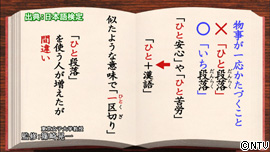 出典:日本語検定
物事が一応かたづくこと
×「ひと段落」
だんらく
○「いち段落」
だんらく
「ひと安心」や「ひと苦労」
「ひと+漢語」
似たような意味で「一区切り」
ひとくぎ
「ひと段落」
を使う人が増えたが
間違い
©NTV